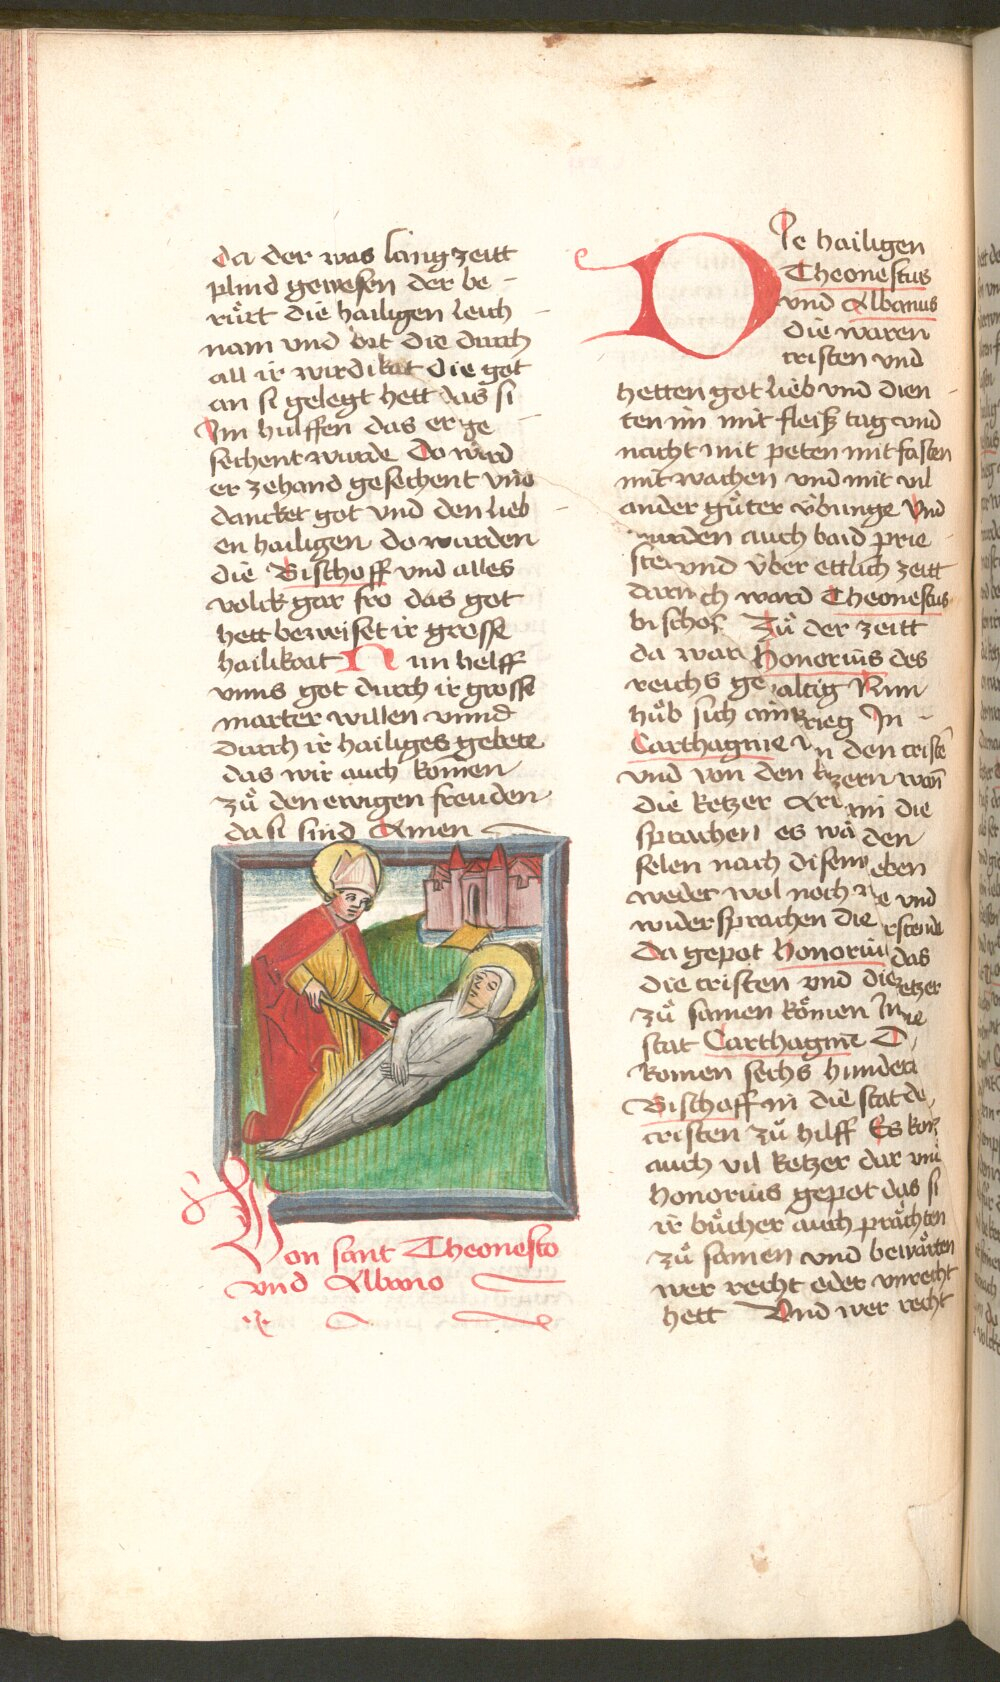 da der was lang zeitt
plind gewesen der be
rürt die hailigen leich
nam und bat die durch
all ir wirdikait die got
an si gelegt hett das si
Im hülffen das er ge
sechent wurde Do ward
er zehand gesechent und
dancket got und den lieb
en hailigen do wurden
die Bischoff und alles
volck gar fro das got
hett beweiset ir grosse
hailikait Nun helff
unns got durch ir grosse
marter willen unnd
durch ir hailiges gebete
das wir auch komen
zů den ewigen freuden
da si sind Amen
Von sant Theonesto
und Albano
Die hailigen
Theonestus
und Albanus
die waren
cristen und
hetten got lieb und dien
ten im mit fleiß tag und
nacht mit peten mit fasten
mit wachen und mit vil
ander gůter übunge Und
wurden auch baid prie
ster und über ettlich zeitt
darnach ward Theonestus
bischof Zů der zeitt
da ward Honorius des
reichs gewaltig Nun
hůb sich ain krieg In
Carthagine von den cristē
und von den ketzern wañ
die ketzer Arriani die
sprachen es wär den
selen nach disem leben
weder wol noch we und
widersprachen die urstende
Da gepot Honorius das
die cristen und die ketzer
zů samen kömen In die
stat Carthagine Da
komen sechs hundert
Bischoff in die stat den
cristen zů hilff Es kom
auch vil ketzer dar und
honorius gepot das si
ir bücher auch prächten
zů samen und bewärten
wer recht oder unrecht
hett Und wer recht